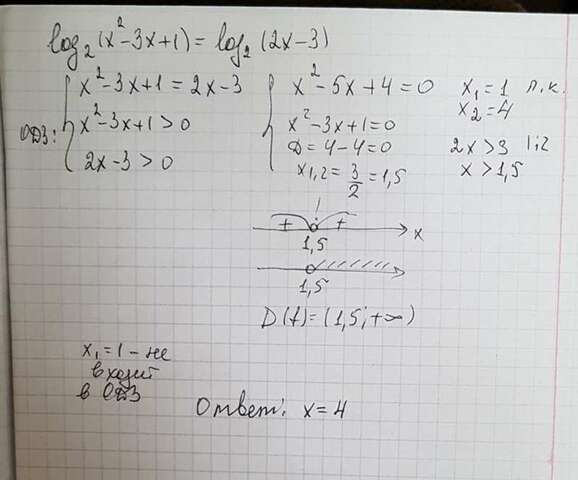 log₂(x²-3x+1) = log₂(2x-3)
x²-3x+1 = 2x-3
ОДЗ:
x²-3x+1 > 0
2x-3 > 0
x²-5x+4=0
x²-3x+1=0
D=4-4=0
x₁,₂ = 3/2 = 1,5
x₁=1 п.к.
x₂=4
2x>3 |:2
x>1,5
+ +
1,5 x
1,5
D(f)=(1,5;+∞)
x₁=1-не
входит
в ОДЗ
Ответ: x=4